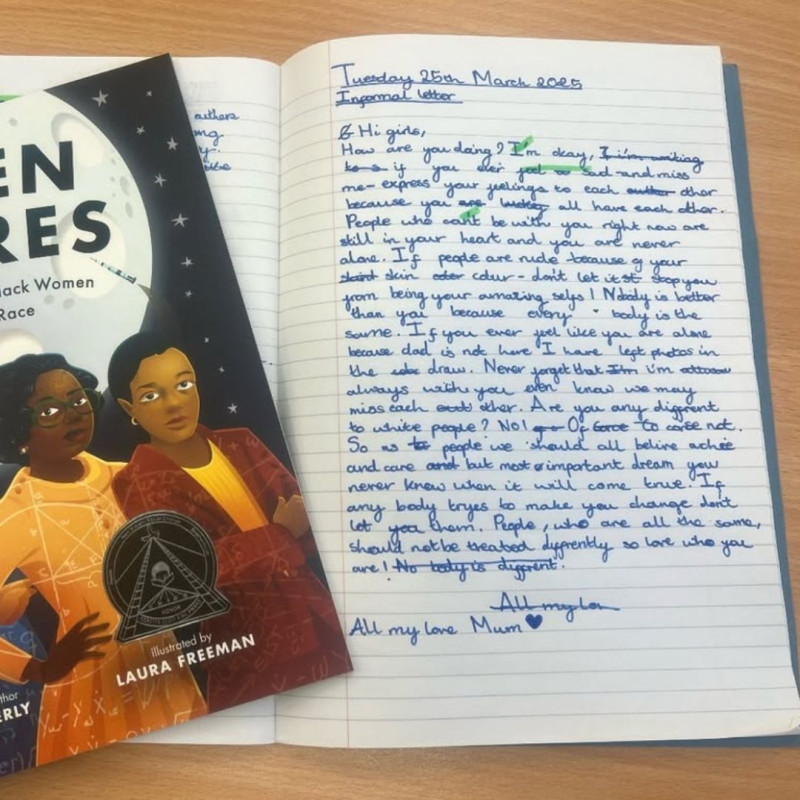 EN
RES
lack Women
Race
Illustrated by
LAURA FREEMAN
thor
ERLY
HONOR
authors
Tuesday 25th March 2025
Informal letter
Hi girls,
How are you doing? I'm okay, I i'm writing
to s if you ever feel so sad and miss
me- express your feelings to each other
because you are lucky all have each other.
People who can't be with you right now are
still in your heart and you are never
alone. If people are rude because of your
skin colour - don't let it st stop you
from being your amazing selfs! Nobody is better
than you because every body is the
same. If you ever feel like you are alone
because dad is not here I have left photos in
the draw. Never forget that I'm i'm
always with you even know we may
miss each other. Are you any diffrent
to white people? No! Of corse not.
So as to people we should all belive achie
and care and but most important dream you
never know when it will come true. If
any body tryes to make you change don't
let you them. People, who are all the same,
should not be treated diffrently so love who you
are! No body is diffrent.
All my lov
All my love Mum